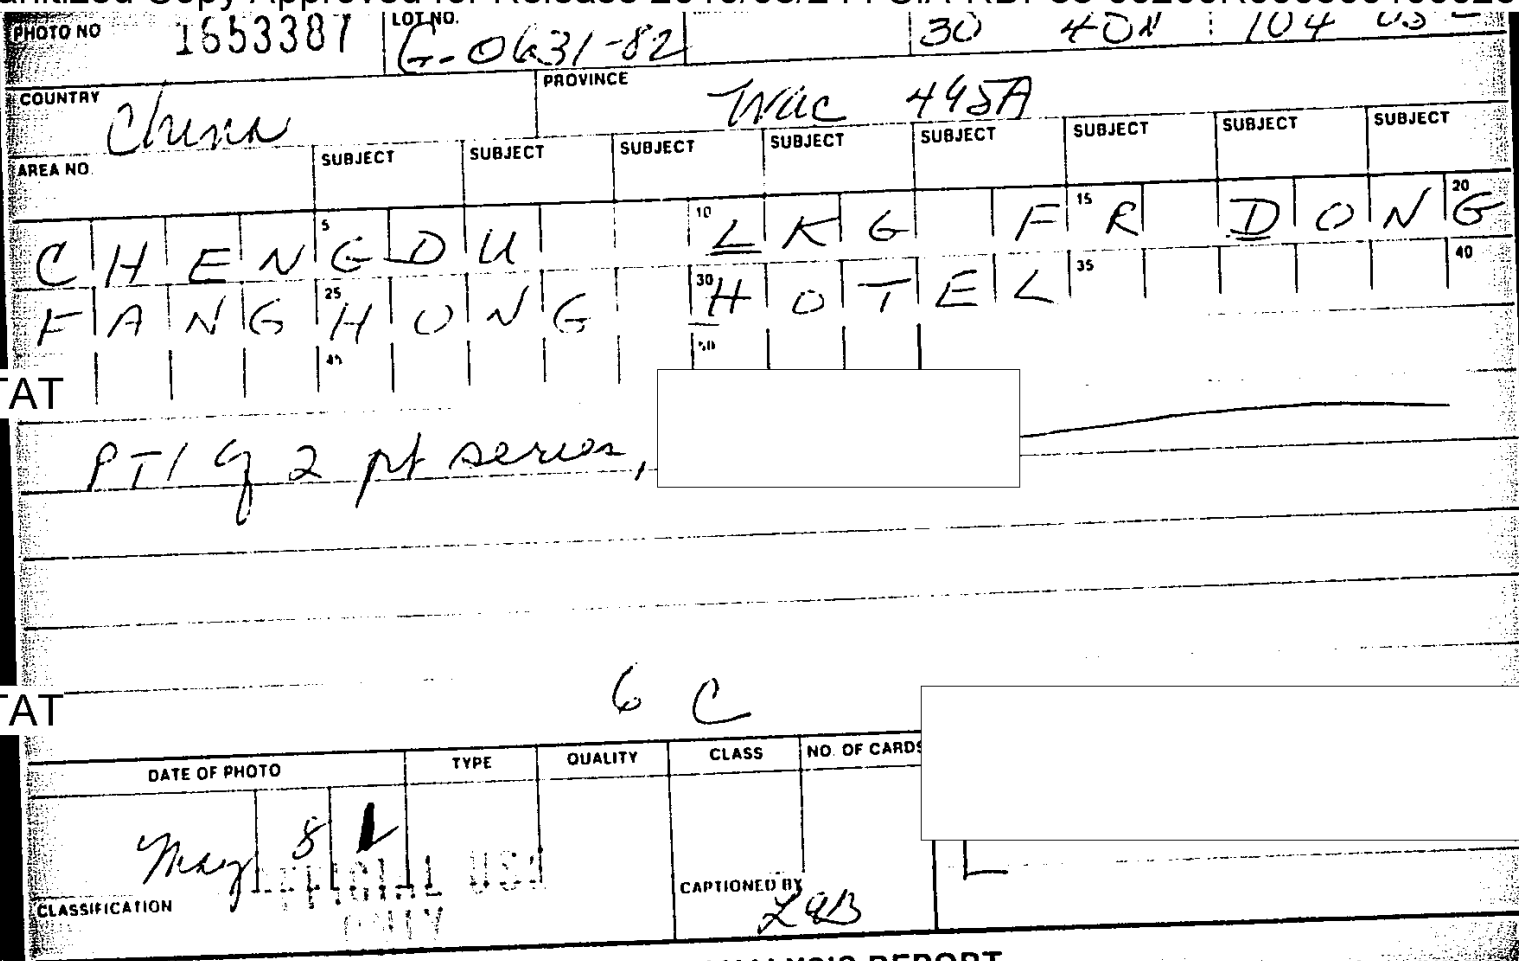 PHOTO NO 1653387 LOT NO. 30 40N 104
COUNTRY China PROVINCE WAC 445A
AREA NO. SUBJECT SUBJECT SUBJECT SUBJECT SUBJECT SUBJECT SUBJECT SUBJECT
CHENGDU LKG FR DONG
5 10 15 20
FANGHONG HOTEL
25 30 35 40
45 50
TAT
PT1 of 2 pt series,
TAT
6 C
DATE OF PHOTO TYPE QUALITY CLASS NO. OF CARDS
May 8
USE
CLASSIFICATION CAPTIONED BY
ONLY
REPORT